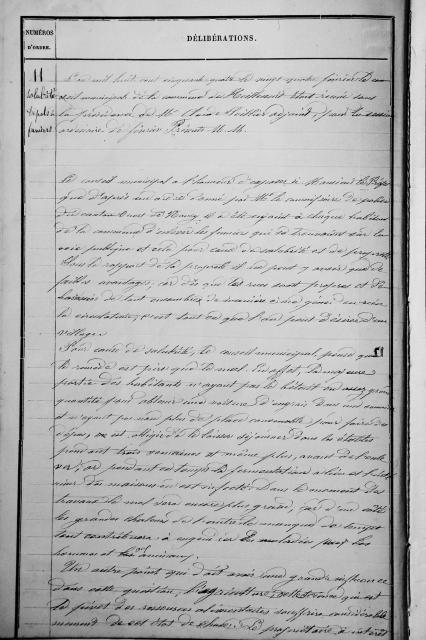 NUMÉROS D'ORDRE.
DÉLIBÉRATIONS.
11
L'an mil huit cent cinquante quatre le vingt quatre février le con
seil municipal de la commune de étant réuni sous
la présidence de Mr adjoint, pour la session
ordinaire de février Présents M.M.
Le conseil municipal a l'honneur d'exposer à Monsieur le Préfet
que d'après un ordre donné par Mr le commissaire de police
du canton de Nancy il a été enjoint à chaque habitant
de la commune d'enlever les fumiers qui se trouvaient sur la
voie publique et cela pour cause de salubrité et de propreté
Sous le rapport de la propreté il ne peut y avoir que de
faibles avantages, car dès que les rues sont propres et dé
barassées de tout de manière à ne gêner en rien
la circulation, c'est tout ce que l'on peut désirer d'un
village.
Pour cause de salubrité, le conseil municipal pense que
le remède est pire que le mal. En effet, la majeure
partie des habitants n'ayant pas le bétail en assez grande
quantité pour obtenir une voiture d'engrais dans une semaine
et n'ayant pas non plus de place convenable pour faire des
dépôts, est obligée de le laisser séjourner dans les étables
pendant trois semaines et même plus, avant de l'enle
ver, or pendant ce temps la fermentation a lieu et
des maisons en est infecté. Dans le moment des
travaux le mal sera encore plus grand, car d'un côté
les grandes chaleurs de l'autre le manque de temps
tout contribuera à engendrer des maladies pour les
hommes et les animaux.
Un autre point qui doit avoir une grande influence
dans cette question, l'agriculture, qui est
le pivot des ressources alimentaires souffrira considérable
ment de cet état de choses. Le propriétaire